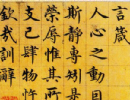 言箴
人心之動因
斯靜專矧是
榮辱惟其所
支己肆物忤
欽哉訓辭